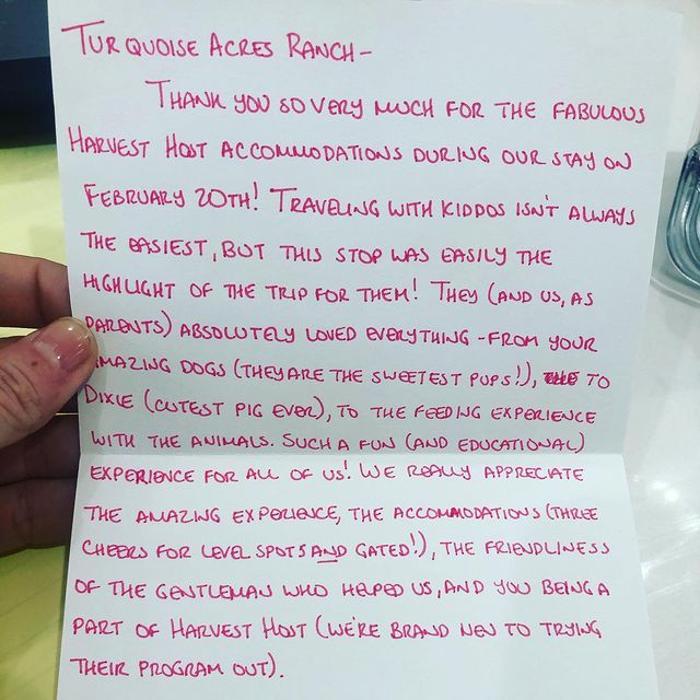 TURQUOISE ACRES RANCH-
THANK YOU SO VERY MUCH FOR THE FABULOUS
HARVEST HOST ACCOMMODATIONS DURING OUR STAY ON
FEBRUARY 20TH! TRAVELING WITH KIDDOS ISN'T ALWAYS
THE EASIEST, BUT THIS STOP WAS EASILY THE
HIGHLIGHT OF THE TRIP FOR THEM! THEY (AND US, AS
PARENTS) ABSOLUTELY LOVED EVERYTHING - FROM YOUR
AMAZING DOGS (THEY ARE THE SWEETEST PUPS!), TO
DIXIE (CUTEST PIG EVER), TO THE FEEDING EXPERIENCE
WITH THE ANIMALS. SUCH A FUN (AND EDUCATIONAL)
EXPERIENCE FOR ALL OF US! WE REALLY APPRECIATE
THE AMAZING EXPERIENCE, THE ACCOMMODATIONS (THREE
CHEERS FOR LEVEL SPOTS AND GATED!), THE FRIENDLINESS
OF THE GENTLEMAN WHO HELPED US, AND YOU BEING A
PART OF HARVEST HOST (WE'RE BRAND NEW TO TRYING
THEIR PROGRAM OUT).